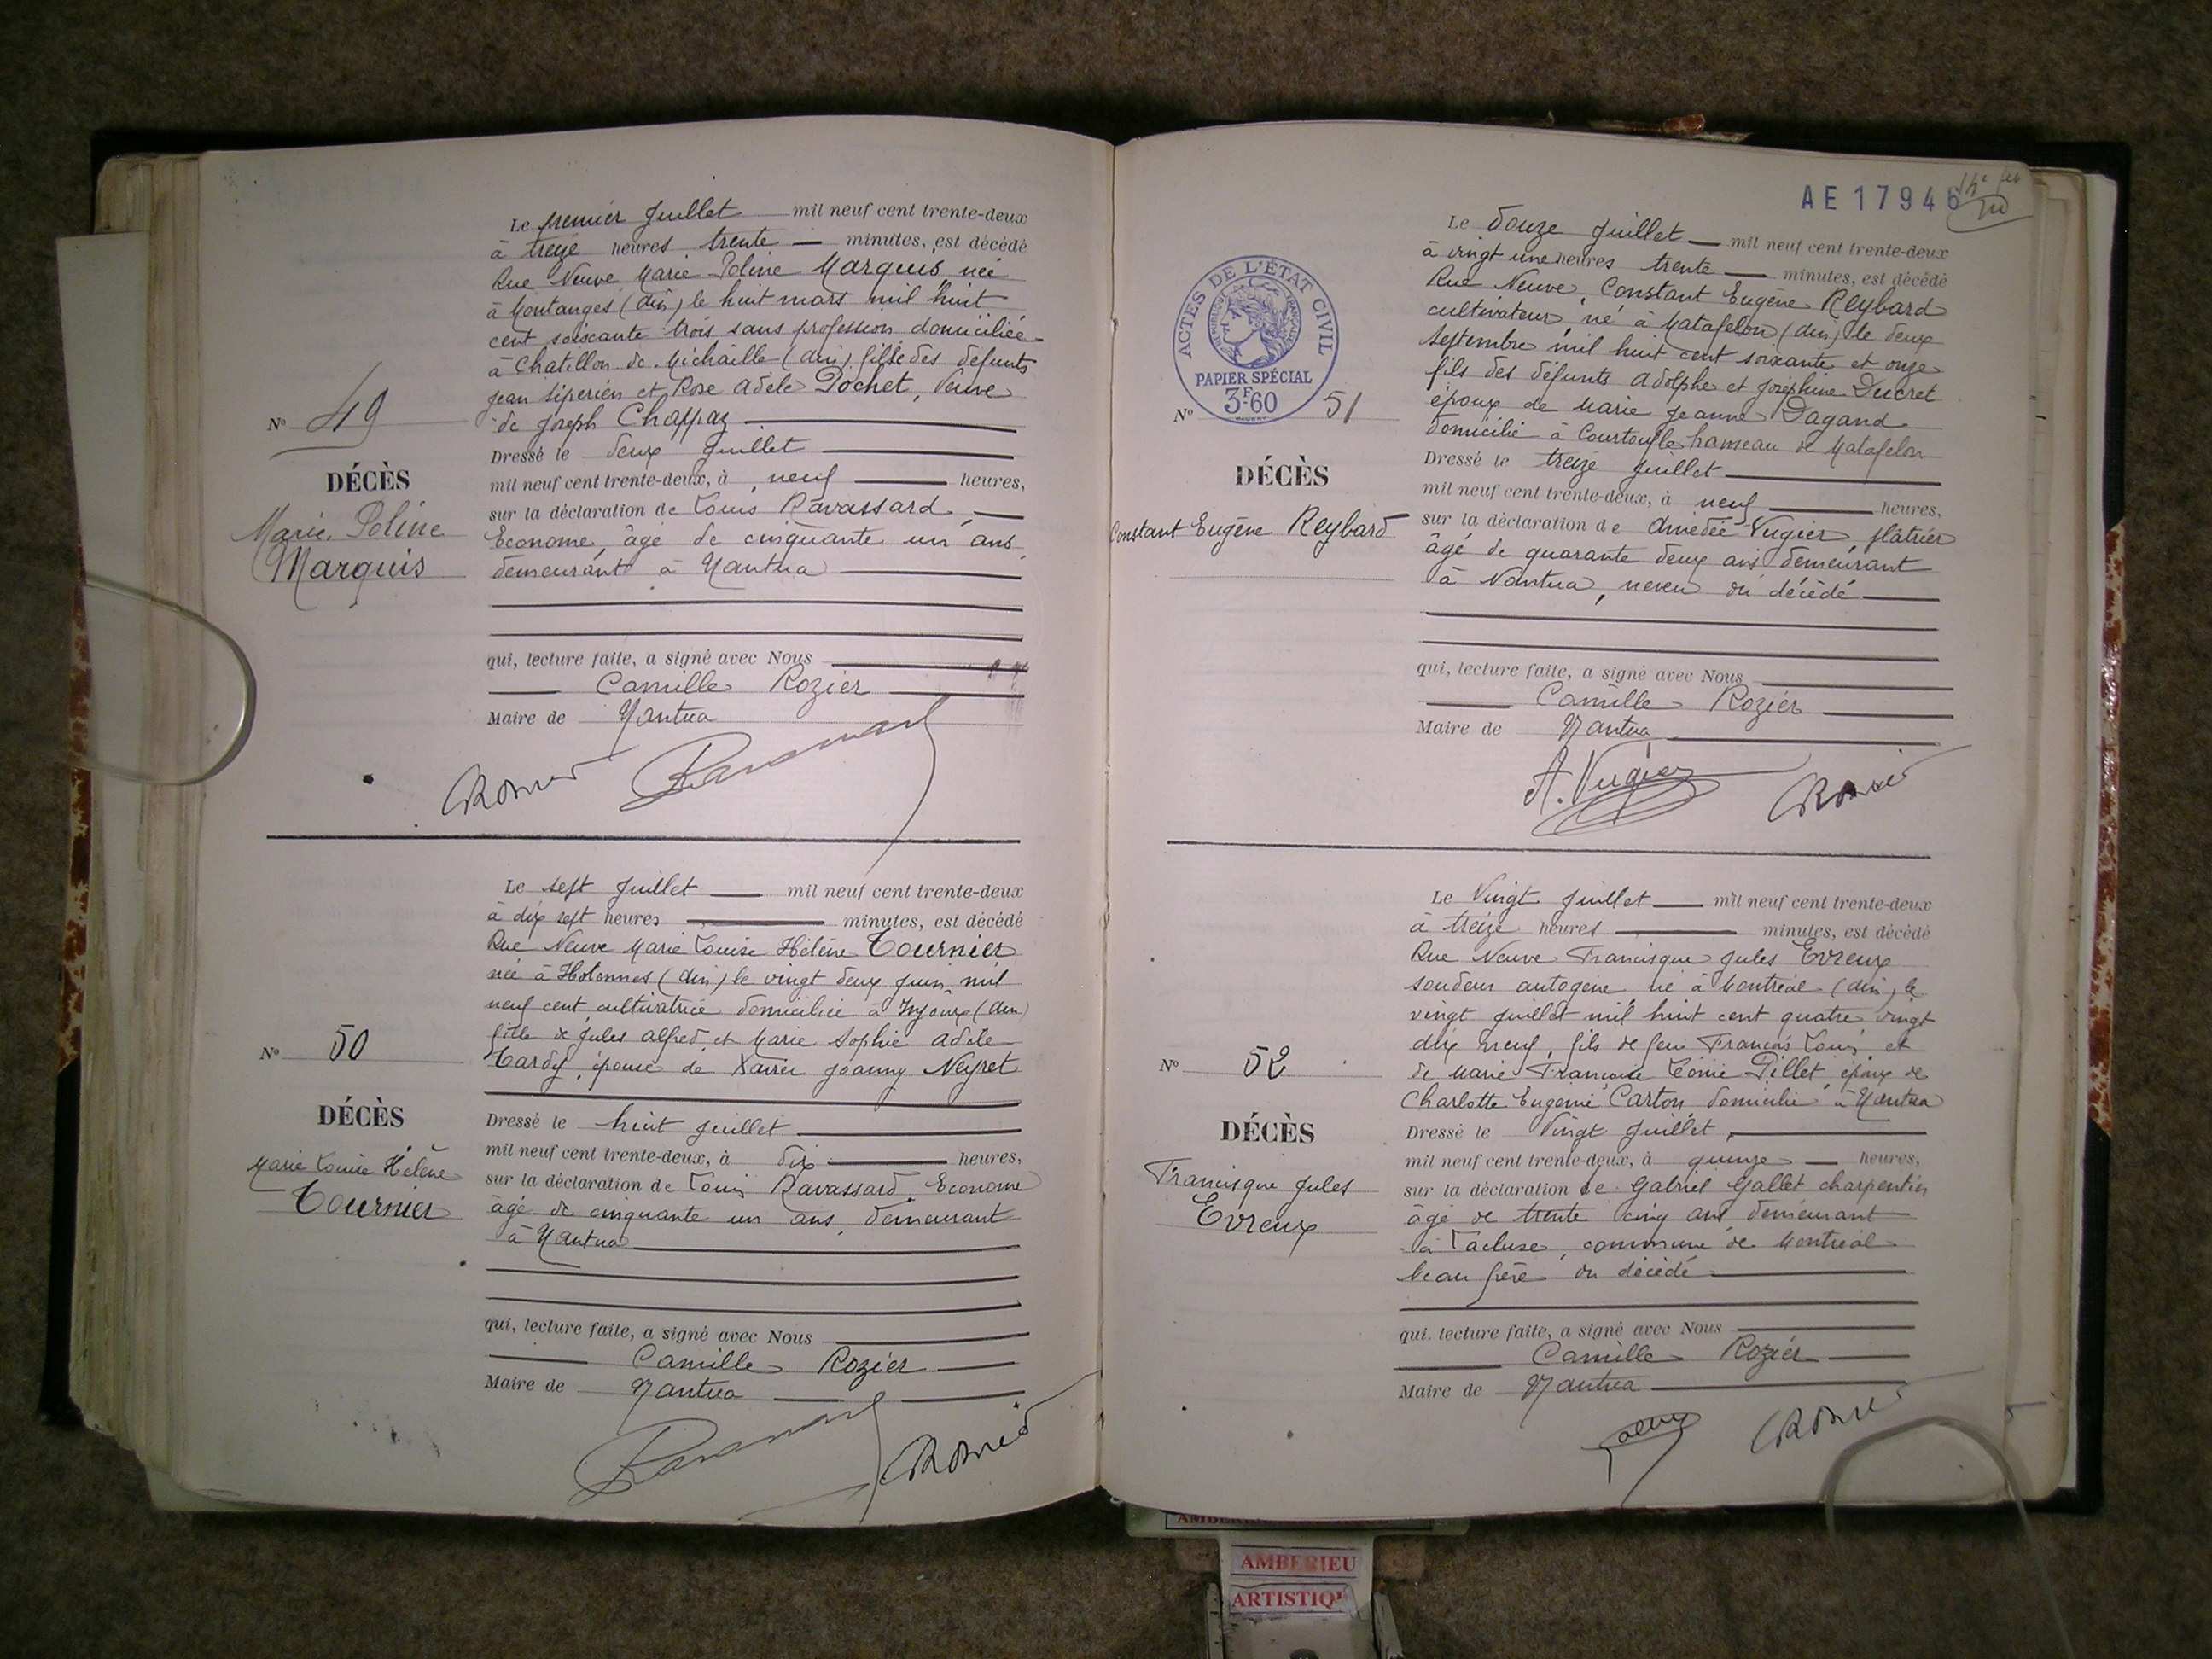 Le premier Juillet mil neuf cent trente-deux
à treize heures trente minutes, est décédé
Rue Neuve Marie Poline Marquis née
à Montanges (Ain) le huit mars mil huit
cent soixante trois sans profession domiciliée
à Chatillon de Michaille (Ain) fille des défunts
Jean et Rose Adèle Pochet, Veuve
de Joseph Chappaz
Nº 49
DÉCÈS
Marie Poline
Marquis
Dressé le deux Juillet
mil neuf cent trente-deux, à neuf heures,
sur la déclaration de Louis Ravassard
Econome, âgé de cinquante un ans
demeurant à Nantua
qui, lecture faite, a signé avec Nous
Camille Rozier
Maire de Nantua
Le sept Juillet mil neuf cent trente-deux
à dix sept heures minutes, est décédé
Rue Neuve Marie Louise Hélène Tournier
née à Hotonnes (Ain) le vingt deux Juin mil
neuf cent, cultivatrice domiciliée à Injoux (Ain)
fille de Jules Alfred et Marie Sophie Adèle
Tardy, épouse de Xavier Joanny Neyret
Nº 50
DÉCÈS
Marie Louise Hélène
Tournier
Dressé le huit Juillet
mil neuf cent trente-deux, à dix heures,
sur la déclaration de Louis Ravassard, Econome
âgé de cinquante un ans, demeurant
à Nantua
qui, lecture faite, a signé avec Nous
Camille Rozier
Maire de Nantua
AE 17946
ACTES DE L'ÉTAT CIVIL
PAPIER SPÉCIAL
3F60
Le Douze Juillet mil neuf cent trente-deux
à vingt une heures trente minutes, est décédé
Rue Neuve, Constant Eugène Reybard
cultivateur, né à Matafelon (Ain) le deux
Septembre mil huit cent soixante et onze
fils des défunts Adolphe et Joséphine Ducret
époux de Marie Jeanne Dagand
domicilié à hameau de Matafelon
Nº 51
DÉCÈS
Constant Eugène Reybard
Dressé le treize Juillet
mil neuf cent trente-deux, à neuf heures,
sur la déclaration de Amédée Vugier, plâtrier
âgé de quarante deux ans demeurant
à Nantua, neveu du décédé
qui, lecture faite, a signé avec Nous
Camille Rozier
Maire de Nantua
A. Vugier
Le Vingt Juillet mil neuf cent trente-deux
à treize heures minutes, est décédé
Rue Neuve Francisque Jules Evreux
soudeur autogène né à Montréal (Ain) le
vingt Juillet mil huit cent quatre vingt
dix neuf, fils de feu François Louis et
de Marie Françoise Léonie Pillet, époux de
Charlotte Eugénie Carton, domicilié à Nantua
Nº 52
DÉCÈS
Francisque Jules
Evreux
Dressé le Vingt Juillet
mil neuf cent trente-deux, à quinze heures,
sur la déclaration de Gabriel Gallet charpentier
âgé de trente cinq ans, demeurant
à Lacluse, commune de Montréal
beau frère du décédé
qui, lecture faite, a signé avec Nous
Camille Rozier
Maire de Nantua
AMBERIEU
ARTISTIQU